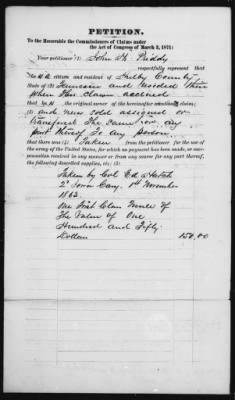 PETITION.
To the Honorable the Commissioners of Claims under
the Act of Congress of March 3, 1871:
Your petitioner (1) John W. Duddy
respectfully represent that
he is a citizen and resident of Shelby County
State of (2) Tennessee and resided there
when the claim accrued
that he is the original owner of the hereinafter claim;
(3) and never sold assigned or
transfered the same nor any
part thereof to any person
that there was (4) Taken from the petitioner for the use of
the army of the United States, for which no payment has been made, or
received by petitioner in any manner or from any source for any part thereof,
the following described supplies, etc.: (5)
Taken by Col Ed Hatch
2d Iowa Cavy. 1st November
1863.
One First Class Mule of
The Value of One
Hundred and Fifty
Dollars 150.00